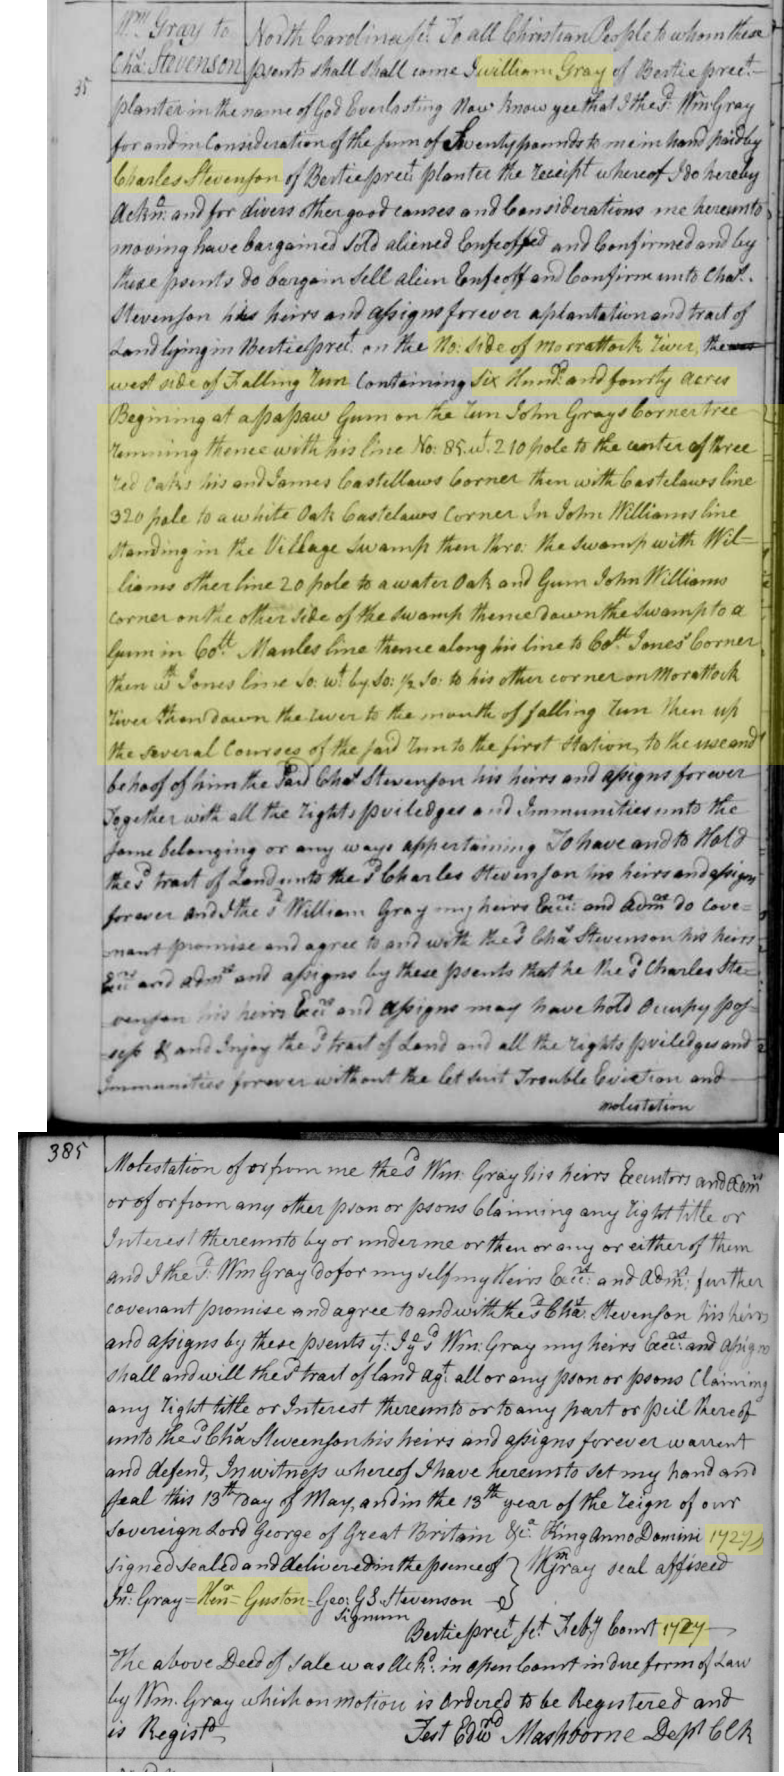 Wm. Gray to
Chas. Stevenson
35
North Carolina sct. To all Christian People to whom these
psents shall shall come I william Gray of Bertie prect.
planter in the name of God Everlasting Now know yee that I the sd. Wm Gray
for and in Consideration of the sum of Twenty pounds to me in hand paid by
Charles Stevenson of Bertie prect. planter the receipt whereof I do hereby
Ackn: and for divers other good causes and Considerations me hereunto
moving have bargained Sold aliened Enfeoffed and Confirmed and by
these psents do bargain sell alien Enfeoff and Confirm unto Chas.
Stevenson his heirs and assigns forever a plantation and tract of
Land lying in Bertie prect. on the No: side of Morrattock River, the
west side of Falling Run Containing Six Hund: and fourty acres
Begining at a papaw Gum on the Run John Grays Corner tree
running thence with his line No: 85 wt. 210 pole to the center of three
red Oaks his and James Castellaws Corner then with Castelaws line
320 pole to a white Oak Castelaws Corner In John Williams line
standing in the Village Swamp then thro: the swamp with Wil=
liams other line 20 pole to a water Oak and Gum John Williams
corner on the other side of the swamp thence down the swamp to a
Gum in Coll. Maules line thence along his line to Coll. Jones' Corner
then wth Jones line So: wt. by So: ½ So: to his other corner on Morattock
River then down the river to the mouth of falling Run then up
the several Courses of the said Run to the first Station, to the use and
behoof of him the said Chas Stevenson his heirs and assigns forever
Together with all the rights priviledges and Immunities unto the
same belonging or any ways appertaining To have and to Hold
the sd tract of Land unto the sd Charles Stevenson his heirs and assigns
forever and I the sd William Gray my heirs Exrs. and Admrs do Cove=
nant promise and agree to and with the sd Chas Stevenson his heirs
Exrs and Admrs and assigns by these psents that he the sd Charles Ste=
venson his heirs Exrs and assigns may have hold Occupy pos=
sess & and Injoy the sd tract of Land and all the rights priviledges and
Immunities forever without the let suit Trouble Eviction and
molestation
385
Molestation of or from me the sd Wm. Gray his heirs Executors and Admrs
or of or from any other pson or psons Claiming any right title or
Interest thereunto by or under me or then or any or either of them
and I the sd. Wm Gray do for my self my Heirs Exrs: and Admrs: further
covenant promise and agree to and with the sd Chas. Stevenson his heirs
and assigns by these psents yt. I ye sd Wm. Gray my heirs Exrs and assigns
shall and will the sd tract of land agt. all or any pson or psons Claiming
any right title or Interest thereunto or to any part or pcil thereof
unto the sd Chas Steveenson his heirs and assigns forever warrent
and defend, In witness whereof I have hereunto set my hand and
seal this 13th day of May, and in the 13th year of the reign of our
sovereign Lord George of Great Britain &ca. King Anno Domini 1727
signed sealed and delivered in the psence of } Wm Gray seal affixed
Jno. Gray = Henr. Guston = Geo: GS Stevenson
Signum
Bertie prect. sct. Feby Court 1727
The above Deed of sale was Ackd. in open Court in due form of Law
by Wm. Gray which on motion is Ordered to be Registered and
is Registd.
Test Edwd Mashborne Dept Clk